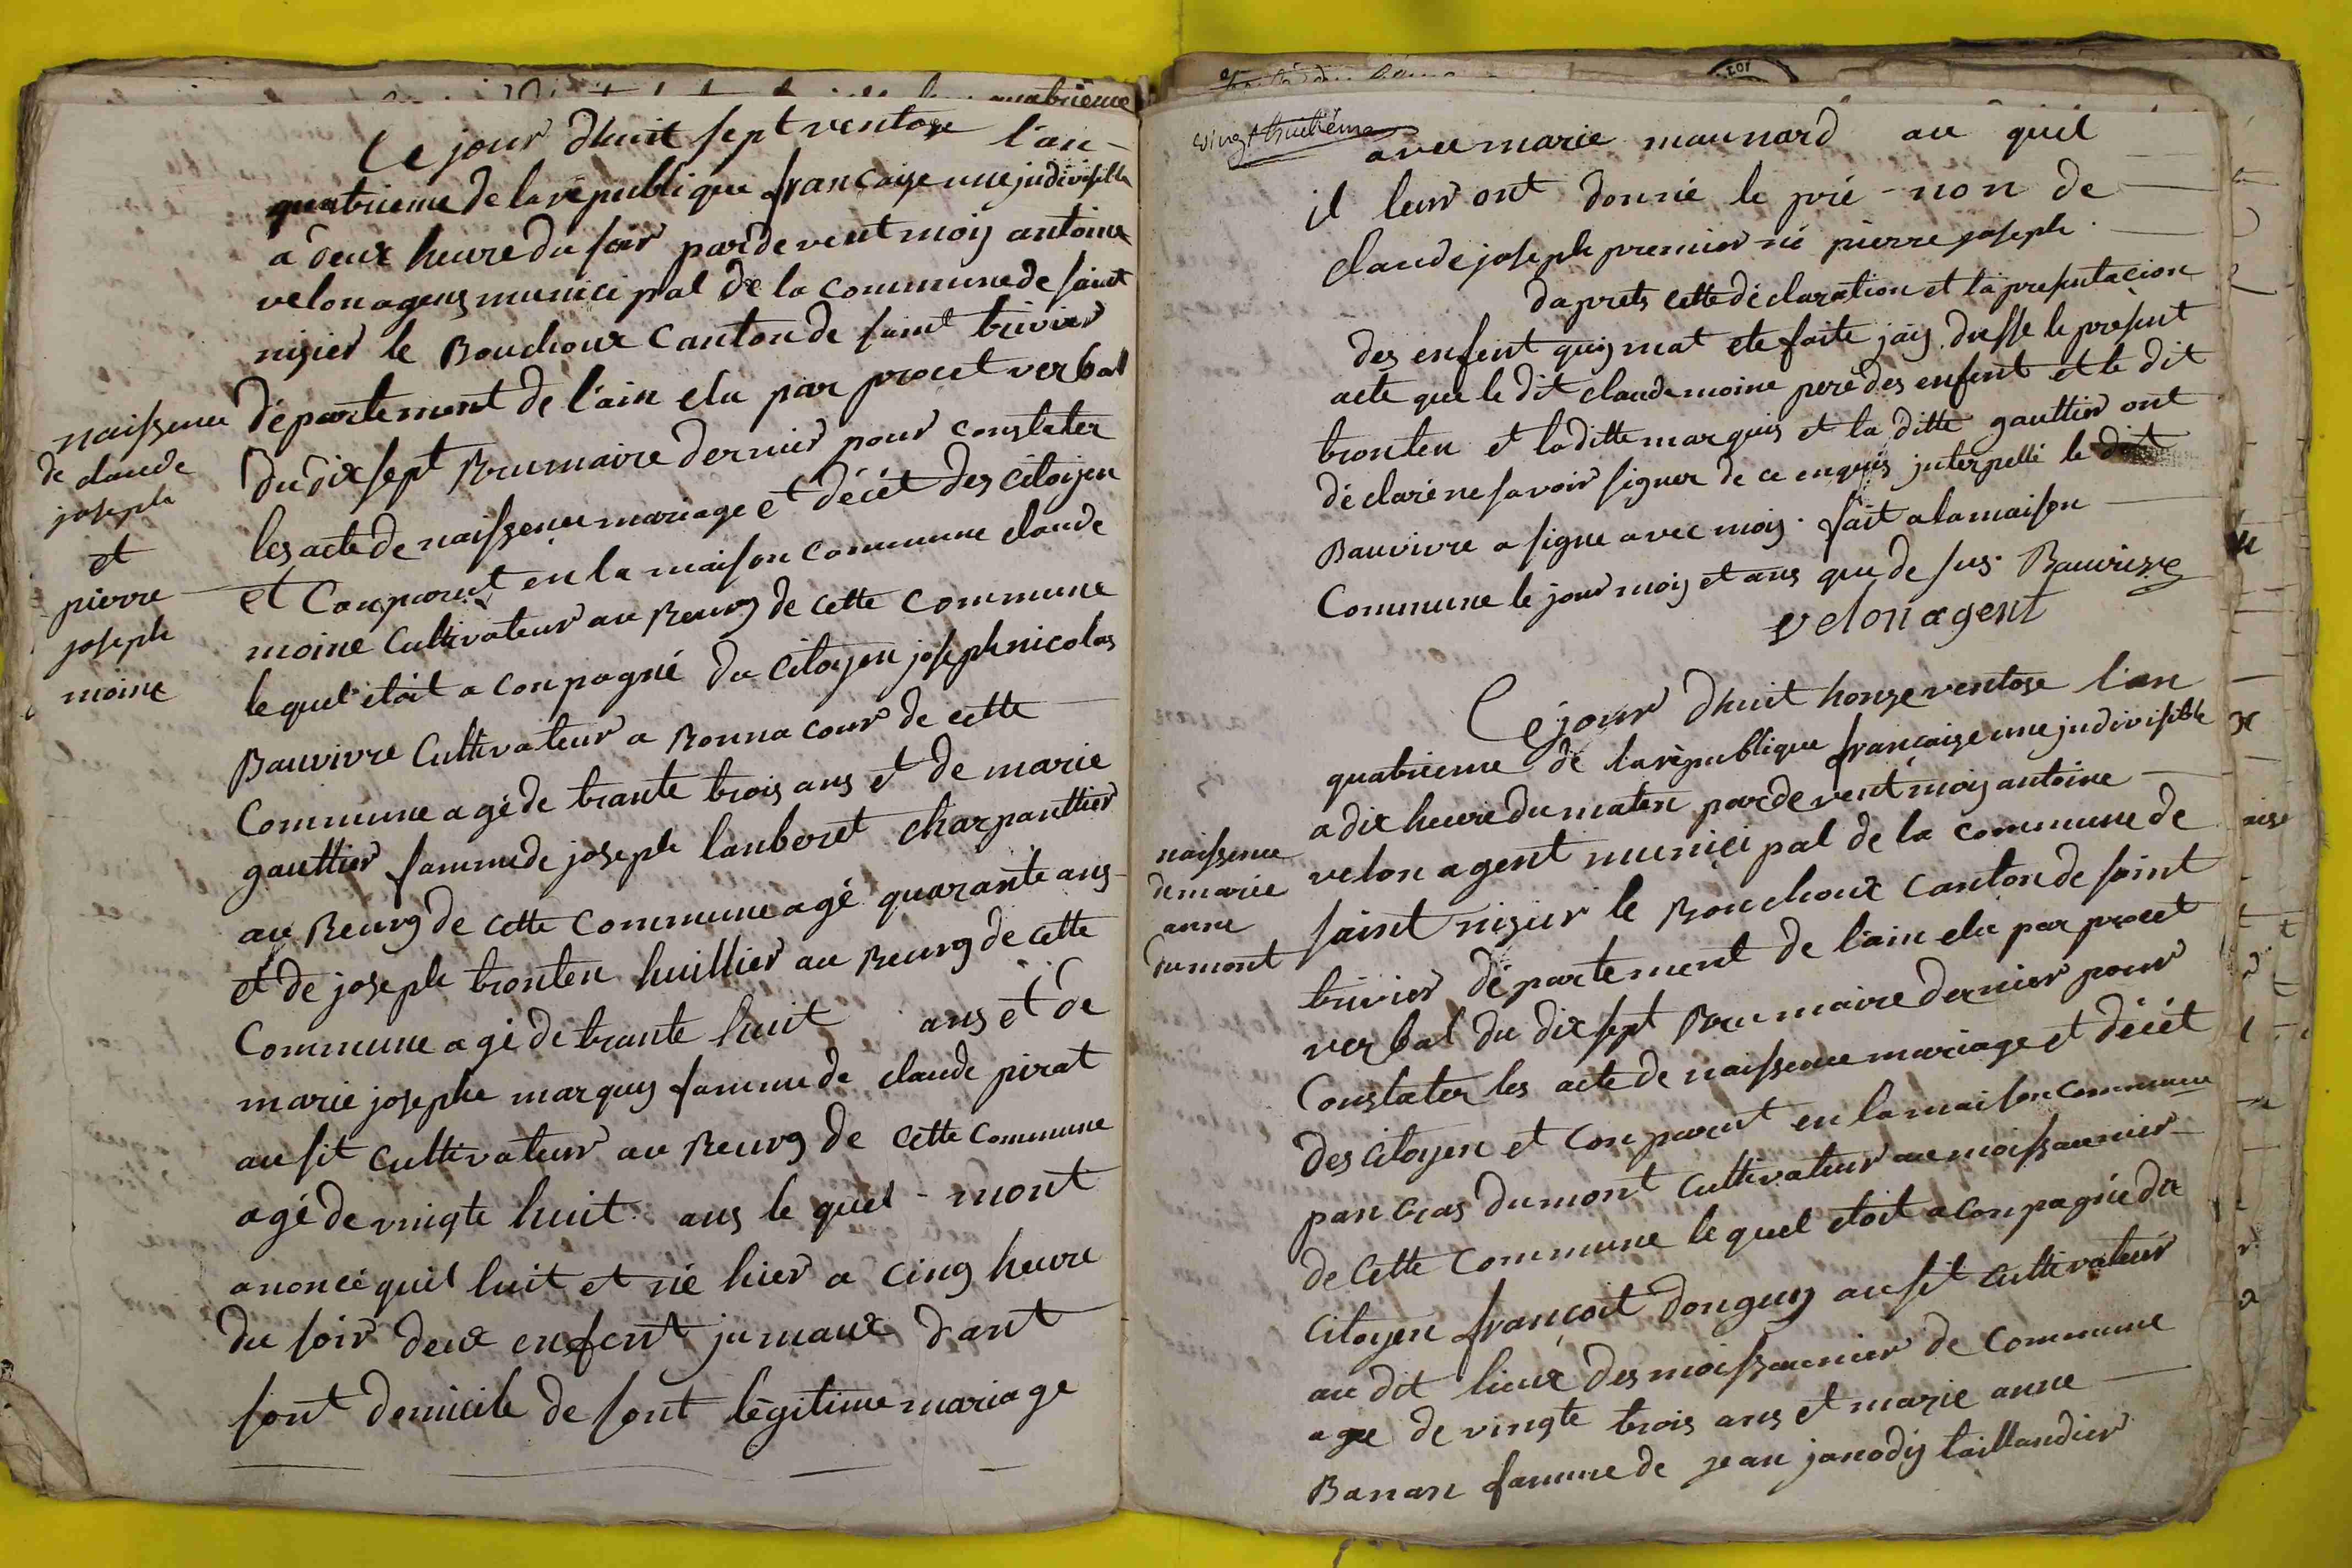 quatrieme
Ce jour dhuit sept ventose l'an
quatrieme de la republique francaise une jndivisible
a deux heure du soir pardevent moy antoine
velon agens munici pal de la commune de saint
nisier le Bouchoux canton de saint trivier
naissence departement de l'ain elu par procet verbal
de claude du dix sept Brumaire dernier pour constater
joseph les acte de naissence mariage et décét des citoyen
et et Conparut en la maison commune claude
pierre moine Cultivateur au Beurg de cette commune
joseph le quel etoit a conpagné du citoyen joseph nicolas
moine Bauvivre Cultivateur a Bonna cour de cette
Commune agé de trante trois ans et de marie
gauttier famme de joseph lanberet charpanttier
au Beurg de cette Commune agé quarante ans
et de joseph tronten huillier au Beurg de cette
Commune agé de trante huit ans et de
marie josephe marquis famme de claude pirat
ausit cultivateur au Beurg de cette commune
agé de vingte huit ans le quel mont
anoncé quil luit et né hier a cinq heure
du soir deux enfent jumaux dant
sont domicile de sont légitime mariage
vingt huitiéme
avec marie maunard au quil
il leur ont donné le pré-non de
claude joseph premier né pierre joseph.
daprets cette déclaration et la presentacion
des enfent quy mat ete faite jay dresse le present
acte que le dit claude moine pere des enfent et le dit
tronten et la ditte marquis et la ditte gauttier ont
déclaré ne savoir signer de ce enquis jnterpellé le dit
Bauvivre a signe avec moy. fait a la maison
Commune le jour mois et ans que de sus. Bauvivre
velon agent
Ce jour dhuit honze ventose l'an
quatrieme de la république francaise une jndivisible
a dix heure du maten pardevent moy antoine
naissence velon agent munici pal de la commune de
de marie saint nisier le Bouchoux canton de saint
anne trivier département de l'ain elu par procet
dumont verbal du dix sept Brumaire dernier pour
Constater les acte de naissence mariage et décét
des citoyen et Conparut en la maison commune
pancras dumont cultivateur au moissonnier
de Cette commune le quel etoit a conpagné du
Citoyen francoit donguy ausit cultivateur
au dit lieux des moissonnier de commune
age de vingte trois ans et marie anne
Banan famme de jean janody taillandier